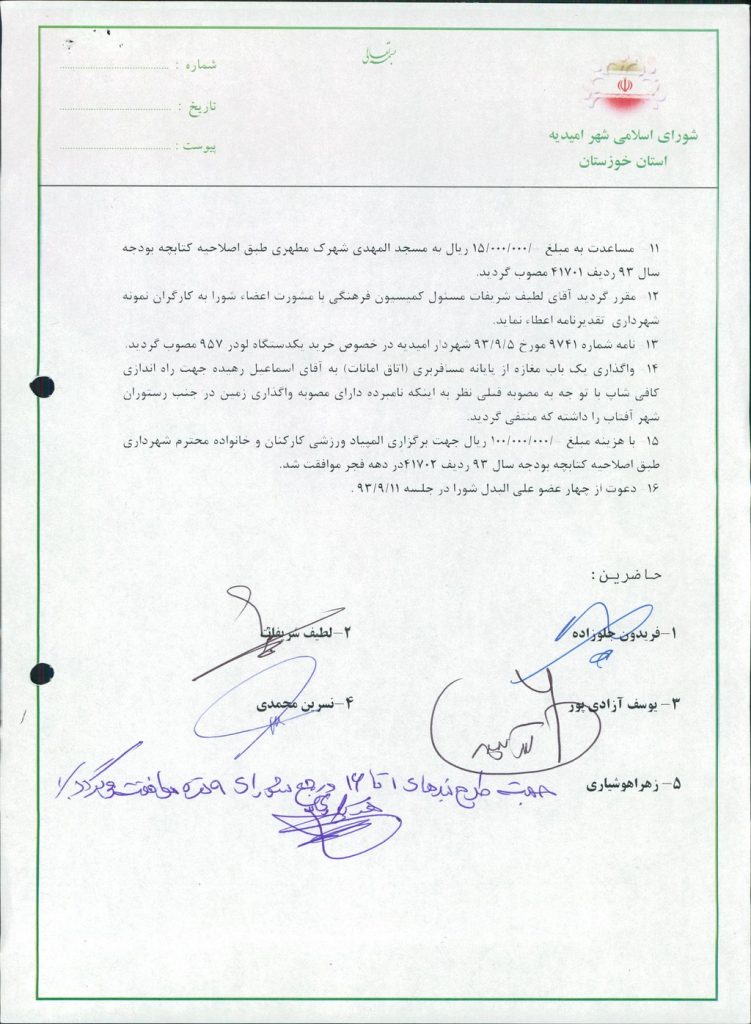 بسمه تعالی
شماره : ............................
تاریخ : ............................
پیوست : ............................
شورای اسلامی شهر امیدیه
استان خوزستان
۱۱- مساعدت به مبلغ ۱۵/۰۰۰/۰۰۰/- ریال به مسجد المهدی شهرک مطهری طبق اصلاحیه کتابچه بودجه
سال ۹۳ ردیف ۴۱۷۰۱ مصوب گردید.
۱۲- مقرر گردید آقای لطیف شریفات مسئول کمیسیون فرهنگی با مشورت اعضاء شورا به کارگران نمونه
شهرداری تقدیرنامه اعطاء نماید.
۱۳- نامه شماره ۹۷۴۱ مورخ ۹۳/۹/۵ شهردار امیدیه در خصوص خرید یکدستگاه لودر ۹۵۷ مصوب گردید.
۱۴- واگذاری یک باب مغازه از پایانه مسافربری (اتاق امانات) به آقای اسماعیل رهیده جهت راه اندازی
کافی شاپ با تو جه به مصوبه قبلی نظر به اینکه نامبرده دارای مصوبه واگذاری زمین در جنب رستوران
شهر آفتاب را داشته که منتفی گردید.
۱۵- با هزینه مبلغ ۱۰۰/۰۰۰/۰۰۰/- ریال جهت برگزاری المپیاد ورزشی کارکنان و خانواده محترم شهرداری
طبق اصلاحیه کتابچه بودجه سال ۹۳ ردیف ۴۱۷۰۲در دهه فجر موافقت شد.
۱۶- دعوت از چهار عضو علی البدل شورا در جلسه ۹۳/۹/۱۱ .
حاضرین :
۱-فریدون جلوزاده
۲-لطیف شریفات
۳- یوسف آزادی پور
۴-نسرین محمدی
۵- زهراهوشیاری
جهت طرح بندهای ۱ تا ۱۶ در شورای موافقت میگردد